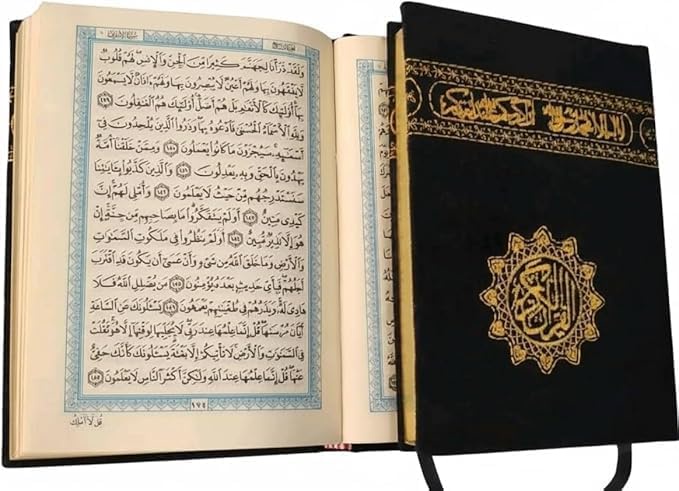 سُورَةُ الأَعْرَافِ
وَلَقَدْ ذَرَأْنَا لِجَهَنَّمَ كَثِيرًا مِّنَ الْجِنِّ وَالْإِنسِ لَهُمْ قُلُوبٌ
لَّا يَفْقَهُونَ بِهَا وَلَهُمْ أَعْيُنٌ لَّا يُبْصِرُونَ بِهَا وَلَهُمْ ءَاذَانٌ لَّا يَسْمَعُونَ
بِهَا أُوْلَٰئِكَ كَالْأَنْعَٰمِ بَلْ هُمْ أَضَلُّ أُوْلَٰئِكَ هُمُ الْغَٰفِلُونَ ١٧٩
وَلِلَّهِ الْأَسْمَاءُ الْحُسْنَىٰ فَادْعُوهُ بِهَا وَذَرُوا الَّذِينَ يُلْحِدُونَ فِي
أَسْمَٰئِهِ سَيُجْزَوْنَ مَا كَانُوا يَعْمَلُونَ ١٨٠ وَمِمَّنْ خَلَقْنَا أُمَّةٌ
يَهْدُونَ بِالْحَقِّ وَبِهِ يَعْدِلُونَ ١٨١ وَالَّذِينَ كَذَّبُوا بِـَٔايَٰتِنَا
سَنَسْتَدْرِجُهُم مِّنْ حَيْثُ لَا يَعْلَمُونَ ١٨٢ وَأُمْلِي لَهُمْ إِنَّ
كَيْدِي مَتِينٌ ١٨٣ أَوَلَمْ يَتَفَكَّرُوا مَا بِصَاحِبِهِم مِّن جِنَّةٍ إِنْ
هُوَ إِلَّا نَذِيرٌ مُّبِينٌ ١٨٤ أَوَلَمْ يَنظُرُوا فِي مَلَكُوتِ السَّمَٰوَٰتِ
وَالْأَرْضِ وَمَا خَلَقَ اللَّهُ مِن شَيْءٍ وَأَنْ عَسَىٰ أَن يَكُونَ قَدِ اقْتَرَبَ
أَجَلُهُمْ فَبِأَيِّ حَدِيثٍ بَعْدَهُ يُؤْمِنُونَ ١٨٥ مَن يُضْلِلِ اللَّهُ فَلَا
هَادِيَ لَهُ وَيَذَرُهُمْ فِي طُغْيَٰنِهِمْ يَعْمَهُونَ ١٨٦ يَسْـَٔلُونَكَ عَنِ السَّاعَةِ
أَيَّانَ مُرْسَىٰهَا قُلْ إِنَّمَا عِلْمُهَا عِندَ رَبِّي لَا يُجَلِّيهَا لِوَقْتِهَا إِلَّا هُوَ ثَقُلَتْ
فِي السَّمَٰوَٰتِ وَالْأَرْضِ لَا تَأْتِيكُمْ إِلَّا بَغْتَةً يَسْـَٔلُونَكَ كَأَنَّكَ حَفِيٌّ
عَنْهَا قُلْ إِنَّمَا عِلْمُهَا عِندَ اللَّهِ وَلَٰكِنَّ أَكْثَرَ النَّاسِ لَا يَعْلَمُونَ ١٨٧
١٧٤
قُل لَّا أَمْلِكُ
القرآن الكريم